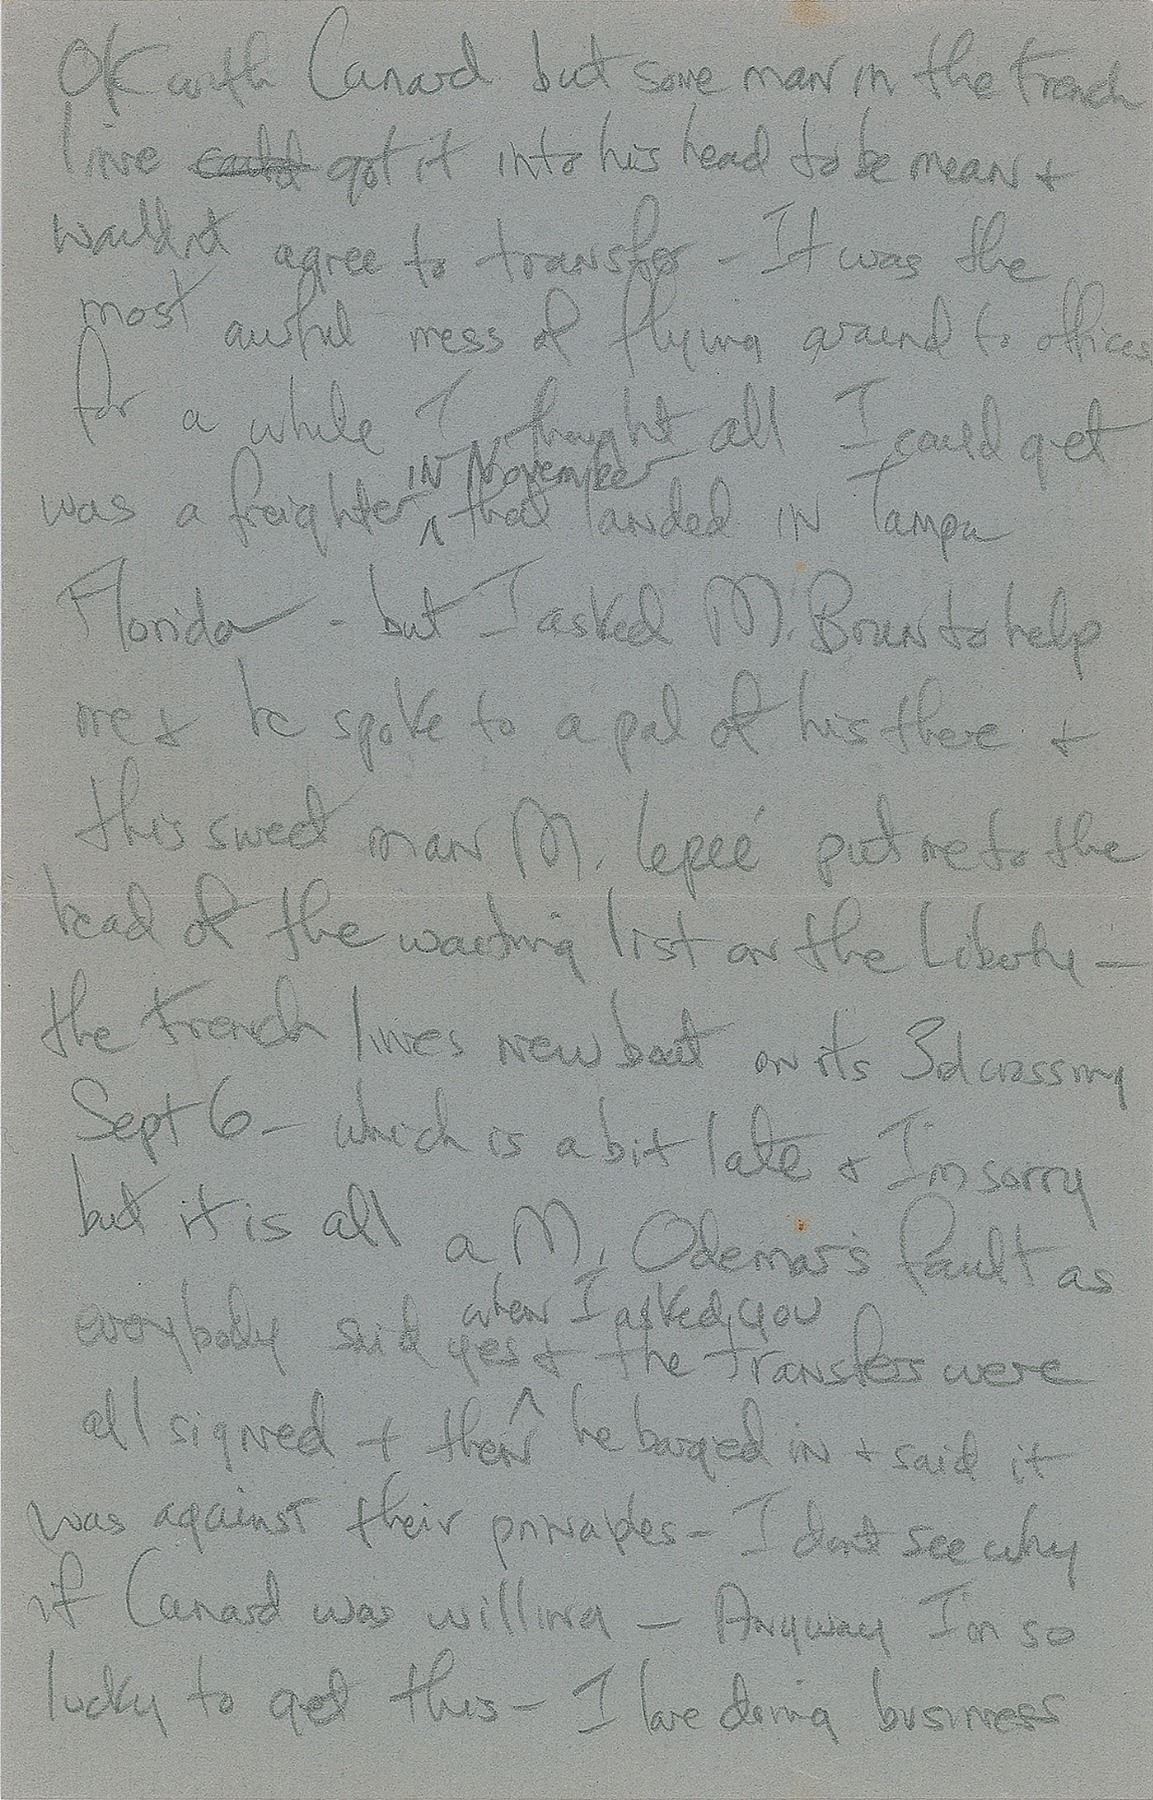 OK with Cunard but some man in the French
line could got it into his head to be mean +
wouldnt agree to transfer - It was the
most awful mess of flying around to offices
for a while I thought all I could get
in November
was a freighter ^ that landed in Tampa
Florida - but I asked M. Brun to help
me + he spoke to a pal of his there +
this sweet man M. Lepée put me to the
head of the waiting list on the Liberty -
the French lines new boat on its 3rd crossing
Sept 6 - which is a bit late + I'm sorry
but it is all a M. Odemar's fault as
when I asked you
everybody said yes + the transfers were
all signed + then ^ he barged in + said it
was against their principles - I dont see why
if Cunard was willing - Anyway I'm so
lucky to get this - I love doing business